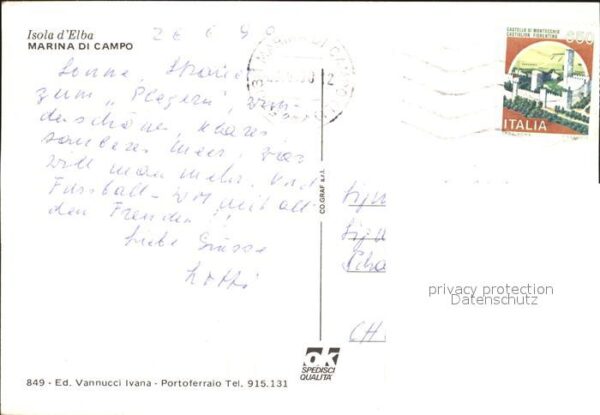 Isola d'Elba
MARINA DI CAMPO
26 6 90
Sonne, Strand
zum "Plegern", wun-
derschönes, klares,
sauberes Meer, was
will man mehr. Und
Fussball-WM mit all
den Freuden!!
Liebe Grüsse
Lotti
MARINA DI CAMPO
CASTELLO DI MONTECCHIO
CASTIGLION FIORENTINO
650
ITALIA
CO.GRAF s.r.l.
Sign
Sign
CH
privacy protection
Datenschutz
ok
SPEDISCI
QUALITÀ
849 - Ed. Vannucci Ivana - Portoferraio Tel. 915.131